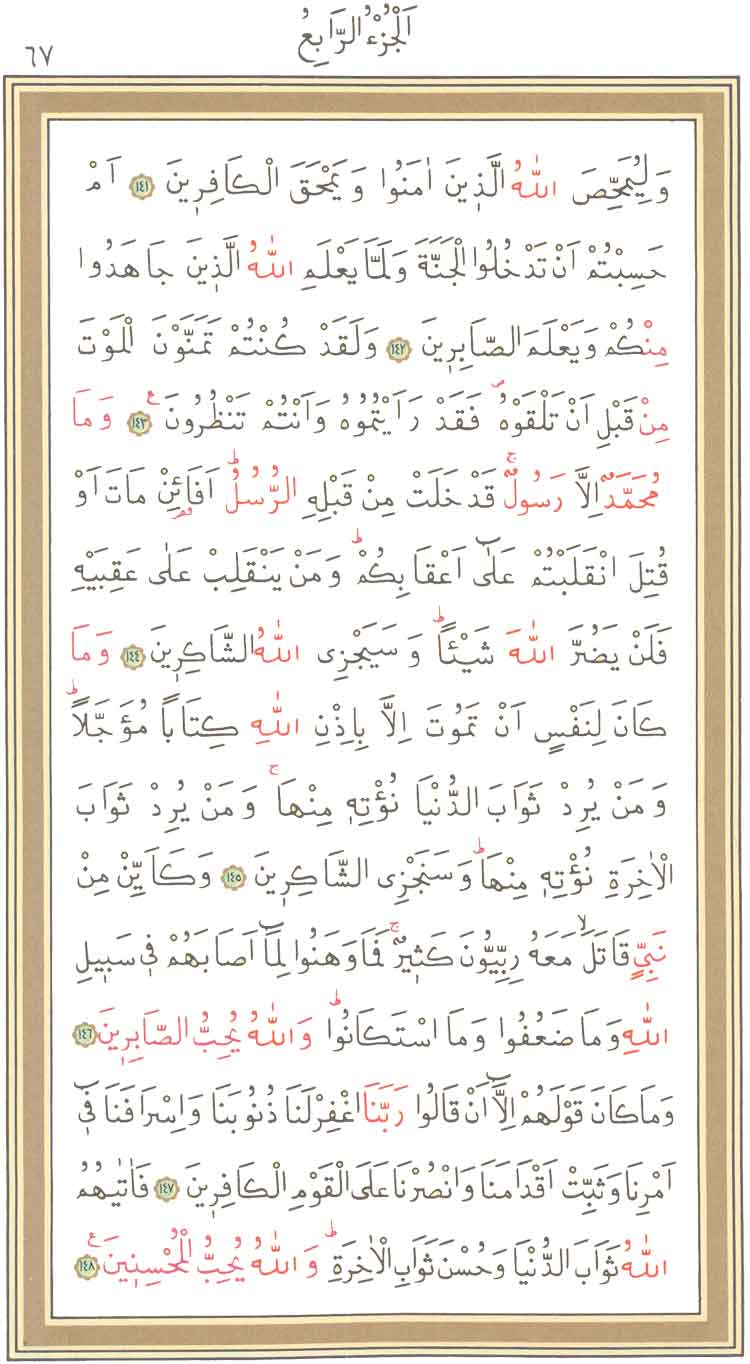 اَلْجُزْءُ الرَّابِعُ
٦٧
وَلِيُمَحِّصَ اللّٰهُ الَّذ۪ينَ اٰمَنُوا وَيَمْحَقَ الْكَافِر۪ينَ ﴿١٤١﴾ اَمْ
حَسِبْتُمْ اَنْ تَدْخُلُوا الْجَنَّةَ وَلَمَّا يَعْلَمِ اللّٰهُ الَّذ۪ينَ جَاهَدُوا
مِنْكُمْ وَيَعْلَمَ الصَّابِر۪ينَ ﴿١٤٢﴾ وَلَقَدْ كُنْتُمْ تَمَنَّوْنَ الْمَوْتَ
مِنْ قَبْلِ اَنْ تَلْقَوْهُۖ فَقَدْ رَاَيْتُمُوهُ وَاَنْتُمْ تَنْظُرُونَ۟ ﴿١٤٣﴾ وَمَا
مُحَمَّدٌ اِلَّا رَسُولٌۚ قَدْ خَلَتْ مِنْ قَبْلِهِ الرُّسُلُۜ اَفَائِنْ مَاتَ اَوْ
قُتِلَ انْقَلَبْتُمْ عَلٰٓى اَعْقَابِكُمْۜ وَمَنْ يَنْقَلِبْ عَلٰى عَقِبَيْهِ
فَلَنْ يَضُرَّ اللّٰهَ شَيْـًٔاۜ وَسَيَجْزِي اللّٰهُ الشَّاكِر۪ينَ ﴿١٤٤﴾ وَمَا
كَانَ لِنَفْسٍ اَنْ تَمُوتَ اِلَّا بِاِذْنِ اللّٰهِ كِتَابًا مُؤَجَّلًاۜ
وَمَنْ يُرِدْ ثَوَابَ الدُّنْيَا نُؤْتِه۪ مِنْهَاۚ وَمَنْ يُرِدْ ثَوَابَ
الْاٰخِرَةِ نُؤْتِه۪ مِنْهَاۜ وَسَنَجْزِي الشَّاكِر۪ينَ ﴿١٤٥﴾ وَكَاَيِّنْ مِنْ
نَبِيٍّ قَاتَلَۙ مَعَهُ رِبِّيُّونَ كَث۪يرٌۚ فَمَا وَهَنُوا لِمَٓا اَصَابَهُمْ ف۪ي سَب۪يلِ
اللّٰهِ وَمَا ضَعُفُوا وَمَا اسْتَكَانُواۜ وَاللّٰهُ يُحِبُّ الصَّابِر۪ينَ ﴿١٤٦﴾
وَمَا كَانَ قَوْلَهُمْ اِلَّٓا اَنْ قَالُوا رَبَّنَا اغْفِرْ لَنَا ذُنُوبَنَا وَاِسْرَافَنَا ف۪ٓي
اَمْرِنَا وَثَبِّتْ اَقْدَامَنَا وَانْصُرْنَا عَلَى الْقَوْمِ الْكَافِر۪ينَ ﴿١٤٧﴾ فَاٰتٰيهُمُ
اللّٰهُ ثَوَابَ الدُّنْيَا وَحُسْنَ ثَوَابِ الْاٰخِرَةِۜ وَاللّٰهُ يُحِبُّ الْمُحْسِن۪ينَ۟ ﴿١٤٨﴾